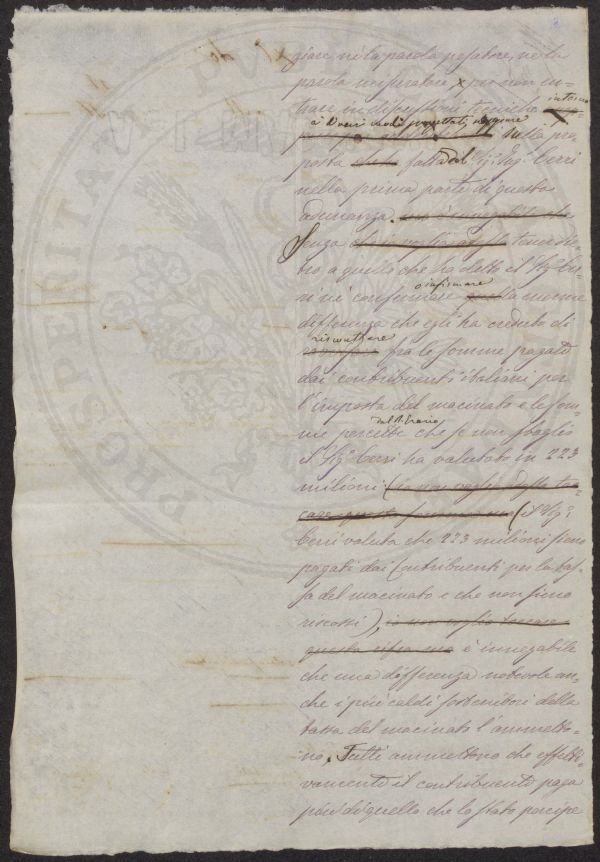 giare nè la parola pesatore, nè la
parola misuratore x per non en-
trare in discussioni tecniche intorno
a Diversi modi progettati, vengono
sulla pro-
posta fatta dal Sig. Ing. Cerri
nella prima parte di questa
adunanza.
Senza tener die-
tro a quello che ha detto il Sig. Cer-
ri nè confermare o infirmare la enorme
differenza che egli ha creduto di
riscontrare fra le somme pagate
dai contribuenti italiani per
l'imposta del macinato e le som-
me percette dal R. Erario che se non sbaglio
il Sig. Cerri ha valutato in 223
milioni (io non voglio
(il Sig.
Cerri valuta che 223 milioni siano
pagati dai Contribuenti per la tas-
sa del macinato e che non siano
riscossi), io non voglio toccare
questa cifra ma è innegabile
che una differenza notevole an-
che i più caldi sostenitori della
tassa del macinato l'ammetto-
no. Tutti ammettono che effetti-
vamente il contribuente paga
più di quello che lo Stato percipe
PROSPERITA PVB